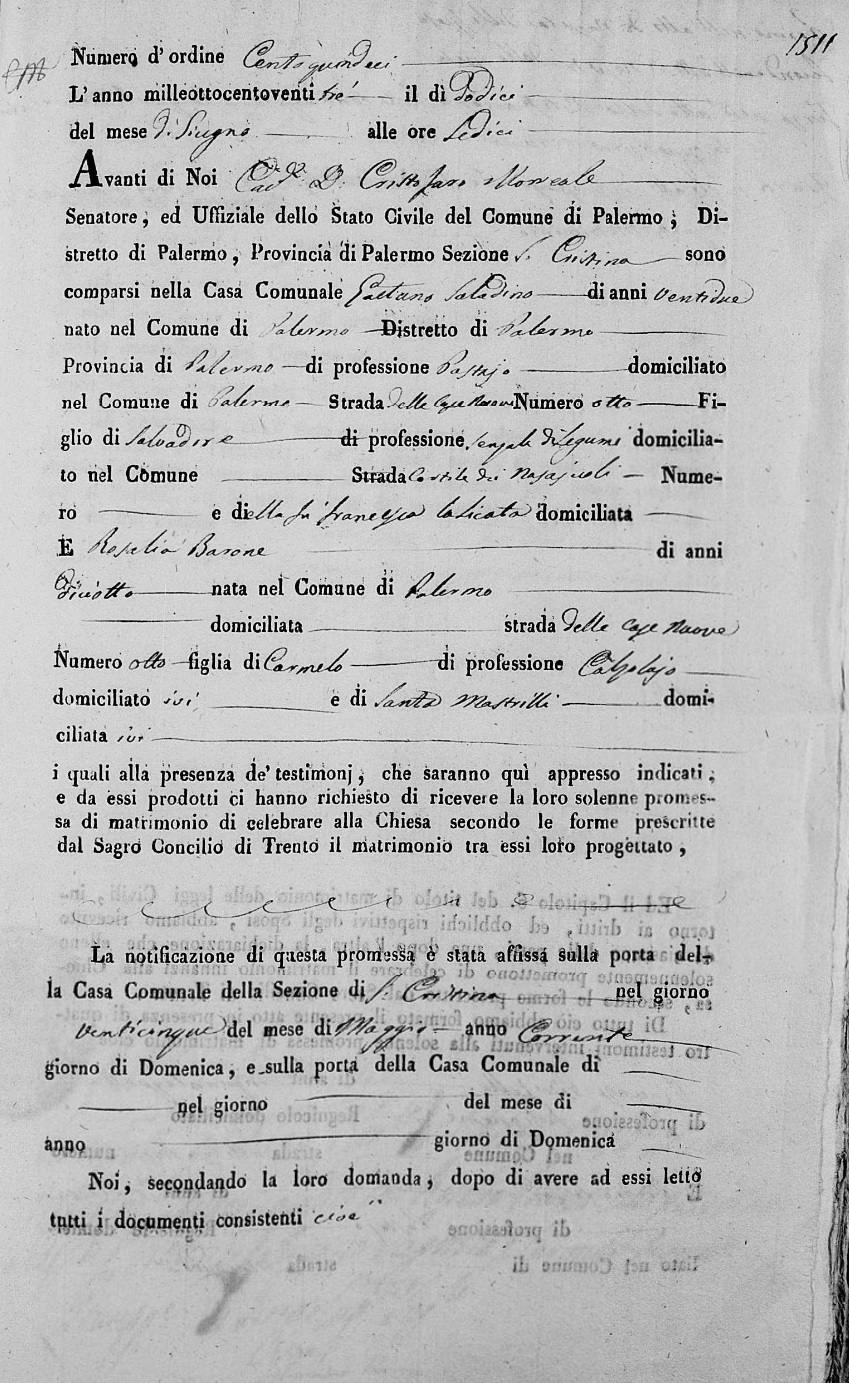 1511
Numero d' ordine Centoquindeci
L' anno milleottocentoventi tré il dì Dodici
del mese di Giugno alle ore Sedici
Avanti di Noi Cav.e D. Cristofaro Morreale
Senatore, ed Uffiziale dello Stato Civile del Comune di Palermo; Di-
stretto di Palermo, Provincia di Palermo Sezione S. Cristina sono
comparsi nella Casa Comunale Gaetano Saladino di anni ventidue
nato nel Comune di Palermo Distretto di Palermo
Provincia di Palermo di professione Pastajo domiciliato
nel Comune di Palermo Strada delle Case Nuove Numero otto Fi-
glio di Salvadore di professione sensale di legumi domicilia-
to nel Comune Strada Cortile dei Nume-
ro e della fu Francesca Licata domiciliata
E Rosalia Barone di anni
diciotto nata nel Comune di Palermo
domiciliata strada delle Case Nuove
Numero otto figlia di Carmelo di professione Calzolajo
domiciliato ivi e di Santa Mastrilli domi-
ciliata ivi
i quali alla presenza de' testimonj, che saranno quì appresso indicati,
e da essi prodotti ci hanno richiesto di ricevere la loro solenne promes-
sa di matrimonio di celebrare alla Chiesa secondo le forme prescritte
dal Sagro Concilio di Trento il matrimonio tra essi loro progettato,
La notificazione di questa promessa è stata affissa sulla porta del-
la Casa Comunale della Sezione di S. Cristina nel giorno
venticinque del mese di Maggio anno Corrente
giorno di Domenica, e sulla porta della Casa Comunale di
nel giorno del mese di
anno giorno di Domenica
Noi, secondando la loro domanda, dopo di avere ad essi letto
tutti i documenti consistenti cioè